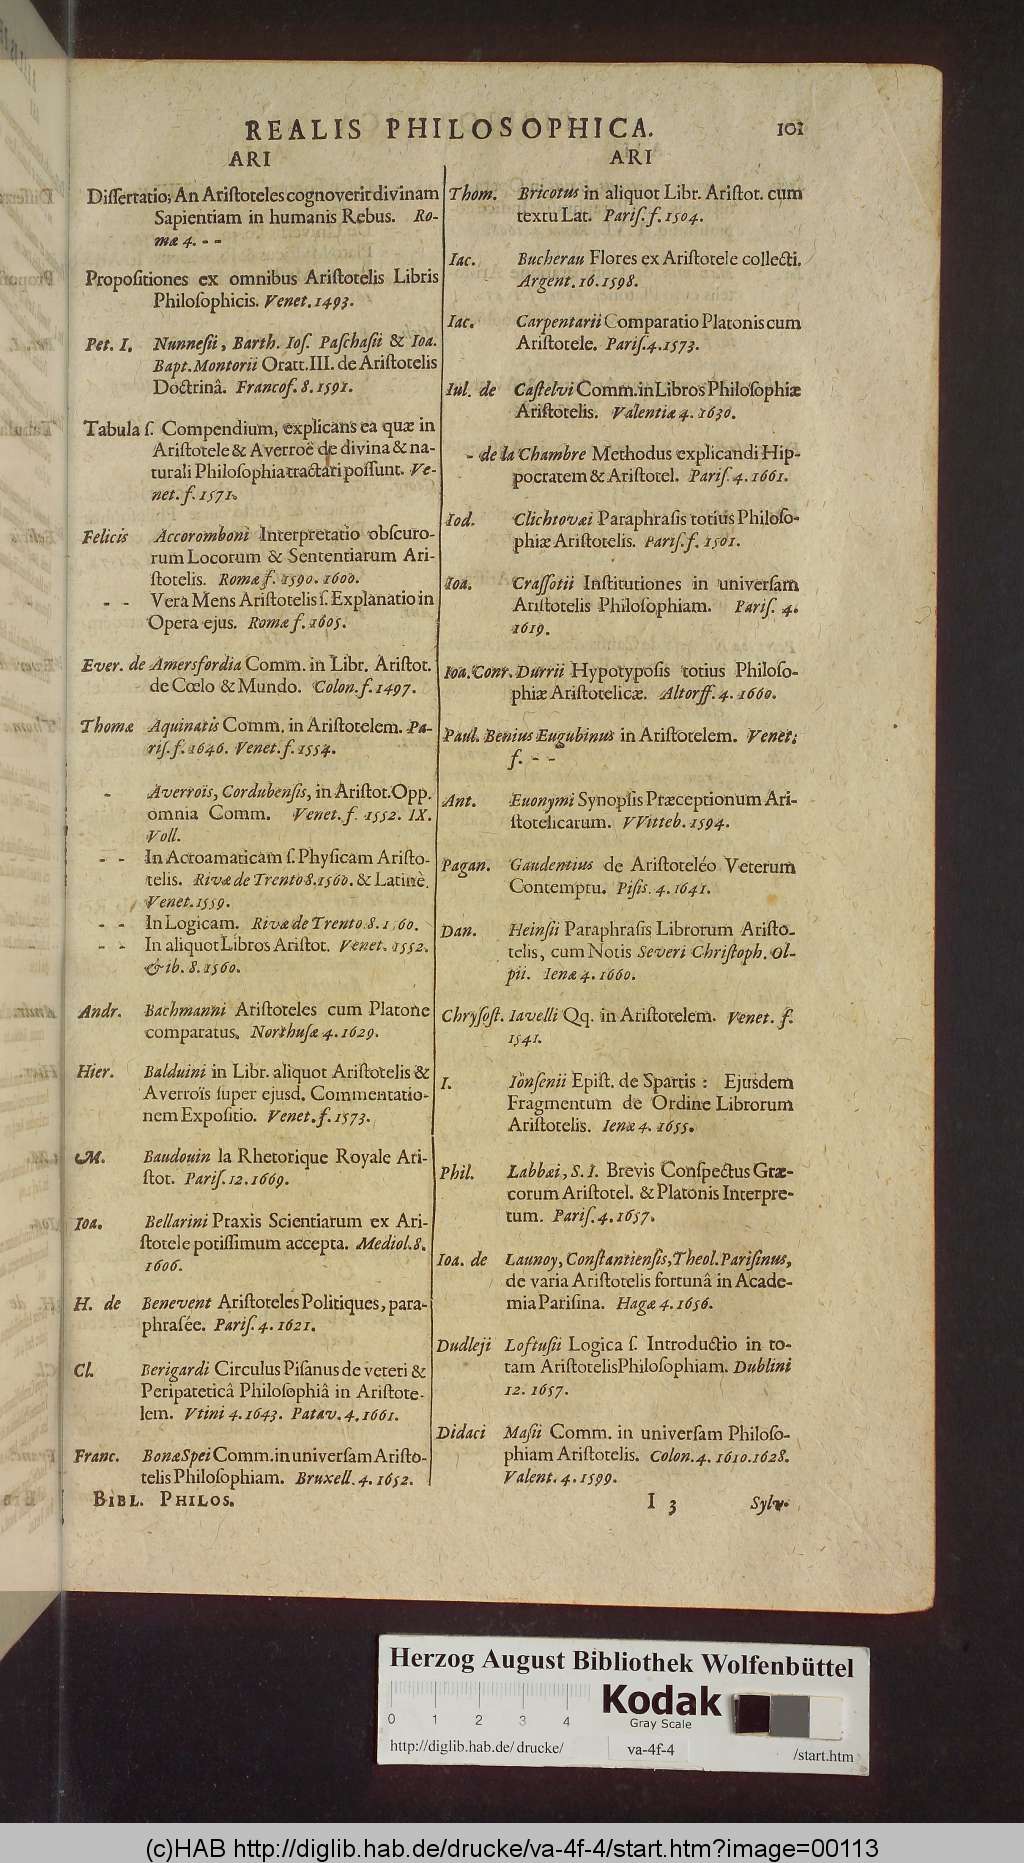 REALIS PHILOSOPHICA. 101
ARI
Dissertatio; An Aristoteles cognoverit divinam
Sapientiam in humanis Rebus. Ro-
mæ 4. - -
Propositiones ex omnibus Aristotelis Libris
Philosophicis. Venet. 1493.
Pet. I. Nunnesii, Barth. Ios. Paschasii & Ioa.
Bapt. Montorii Oratt. III. de Aristotelis
Doctrinâ. Francof. 8. 1591.
Tabula s. Compendium, explicans ea quæ in
Aristotele & Averroë de divina & na-
turali Philosophia tractari possunt. Ve-
net. f. 1571.
Felicis Accoromboni Interpretatio obscuro-
rum Locorum & Sententiarum Ari-
stotelis. Romæ f. 1590. 1600.
- - Vera Mens Aristotelis s. Explanatio in
Opera ejus. Romæ f. 1605.
Ever. de Amersfordia Comm. in Libr. Aristot.
de Cœlo & Mundo. Colon. f. 1497.
Thomæ Aquinatis Comm. in Aristotelem. Pa-
ris. f. 1646. Venet. f. 1554.
- Averrois, Cordubensis, in Aristot. Opp.
omnia Comm. Venet. f. 1552. IX.
Voll.
- - In Acroamaticam s. Physicam Aristo-
telis. Rivæ de Trento 8. 1560. & Latinè.
Venet. 1559.
- - In Logicam. Rivæ de Trento. 8. 1560.
- - In aliquot Libros Aristot. Venet. 1552.
& ib. 8. 1560.
Andr. Bachmanni Aristoteles cum Platone
comparatus. Northusæ 4. 1629.
Hier. Balduini in Libr. aliquot Aristotelis &
Averroïs super ejusd. Commentatio-
nem Expositio. Venet. f. 1573.
M. Baudouin la Rhetorique Royale Ari-
stot. Paris. 12. 1669.
Ioa. Bellarini Praxis Scientiarum ex Ari-
stotele potissimum accepta. Mediol. 8.
1606.
H. de Benevent Aristoteles Politiques, para-
phrasée. Paris. 4. 1621.
Cl. Berigardi Circulus Pisanus de veteri &
Peripateticâ Philosophiâ in Aristote-
lem. Vtini 4. 1643. Patav. 4. 1661.
Franc. Bonæ Spei Comm. in universam Aristo-
telis Philosophiam. Bruxell. 4. 1652.
BIBL. PHILOS.
ARI
Thom. Bricotus in aliquot Libr. Aristot. cum
textu Lat. Paris. f. 1504.
Iac. Bucherau Flores ex Aristotele collecti.
Argent. 16. 1598.
Iac. Carpentarii Comparatio Platonis cum
Aristotele. Paris. 4. 1573.
Iul. de Castelvi Comm. in Libros Philosophiæ
Aristotelis. Valentiæ 4. 1630.
- de la Chambre Methodus explicandi Hip-
pocratem & Aristotel. Paris. 4. 1661.
Iod. Clichtovæi Paraphrasis totius Philoso-
phiæ Aristotelis. Paris. f. 1501.
Ioa. Crassotii Institutiones in universam
Aristotelis Philosophiam. Paris. 4.
1619.
Ioa. Conr. Durrii Hypotyposis totius Philoso-
phiæ Aristotelicæ. Altorff. 4. 1660.
Paul. Benius Eugubinus in Aristotelem. Venet.
f. - -
Ant. Euonymi Synopsis Præceptionum Ari-
stotelicarum. VVitteb. 1594.
Pagan. Gaudentius de Aristoteléo Veterum
Contemptu. Pisis. 4. 1641.
Dan. Heinsii Paraphrasis Librorum Aristo-
telis, cum Notis Severi Christoph. Ol-
pii. Ienæ 4. 1660.
Chrysost. Iavelli Qq. in Aristotelem. Venet. f.
1541.
I. Ionsenii Epist. de Spartis : Ejusdem
Fragmentum de Ordine Librorum
Aristotelis. Ienæ 4. 1655.
Phil. Labbæi, S. I. Brevis Conspectus Græ-
corum Aristotel. & Platonis Interpre-
tum. Paris. 4. 1657.
Ioa. de Launoy, Constantiensis, Theol. Parisinus,
de varia Aristotelis fortunâ in Acade-
mia Parisina. Hagæ 4. 1656.
Dudleji Loftusii Logica s. Introductio in to-
tam Aristotelis Philosophiam. Dublini
12. 1657.
Didaci Masii Comm. in universam Philoso-
phiam Aristotelis. Colon. 4. 1610. 1628.
Valent. 4. 1599.
I 3 Sylv.
Herzog August Bibliothek Wolfenbüttel
0 1 2 3 4
Kodak
Gray Scale
http://diglib.hab.de/drucke/ va-4f-4 /start.htm
(c)HAB http://diglib.hab.de/drucke/va-4f-4/start.htm?image=00113